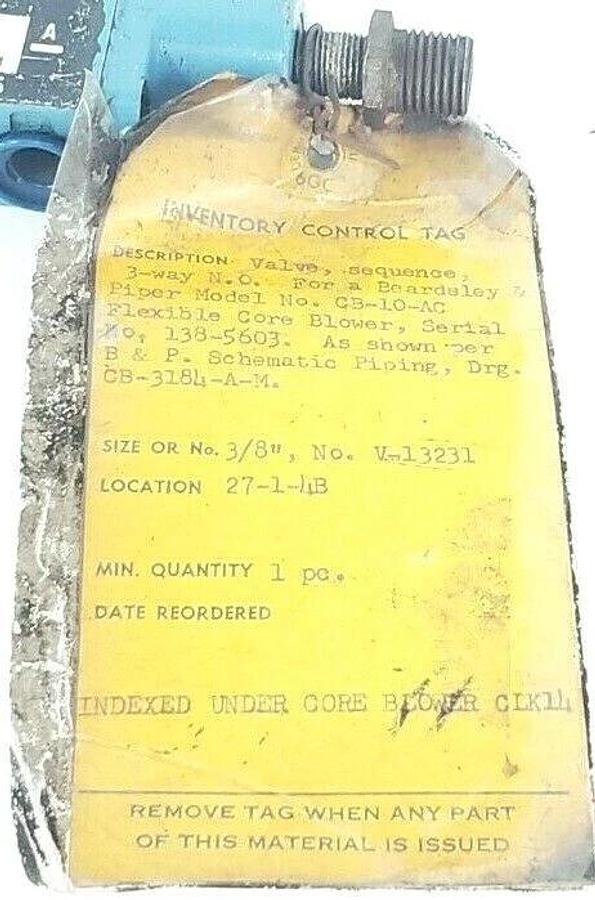 A
6GC
INVENTORY CONTROL TAG
DESCRIPTION Valve, sequence,
3-way N.O. For a Beardsley &
Piper Model No. CB-10-AC
Flexible Core Blower, Serial
No. 138-5603. As shown per
B & P. Schematic Piping, Drg.
CB-3184-A-M.
SIZE OR No. 3/8", No. V-13231
LOCATION 27-1-4B
MIN. QUANTITY 1 pc.
DATE REORDERED
INDEXED UNDER CORE BLOWER CLK14
REMOVE TAG WHEN ANY PART
OF THIS MATERIAL IS ISSUED